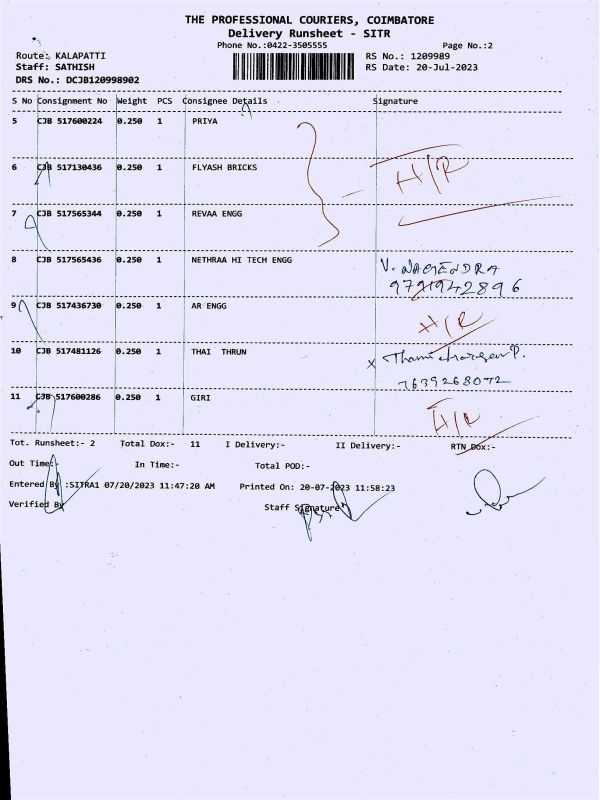 THE PROFESSIONAL COURIERS, COIMBATORE
Delivery Runsheet - SITR
Phone No.:0422-3505555 Page No.:2
Route: KALAPATTI RS No.: 1209989
Staff: SATHISH RS Date: 20-Jul-2023
DRS No.: DCJB120998902
S No Consignment No Weight PCS Consignee Details Signature
5 CJB 517600224 0.250 1 PRIYA
H/R
6 CJB 517130436 0.250 1 FLYASH BRICKS
7 CJB 517565344 0.250 1 REVAA ENGG
8 CJB 517565436 0.250 1 NETHRAA HI TECH ENGG V. NAGENDRA
9791942896
9 CJB 517436730 0.250 1 AR ENGG
H/R
10 CJB 517481126 0.250 1 THAI THRUN x
7639268072
11 CJB 517600286 0.250 1 GIRI
H/R
Tot. Runsheet:- 2 Total Dox:- 11 I Delivery:- II Delivery:- RTN Dox:-
Out Time:- In Time:- Total POD:-
Entered By :SITRA1 07/20/2023 11:47:20 AM Printed On: 20-07-2023 11:58:23
Verified By Staff Signature